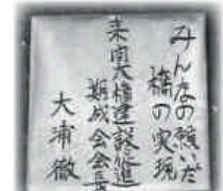 みんなの願いだ
橋の実現
来南大橋建設促進
期成会会長
大浦徹